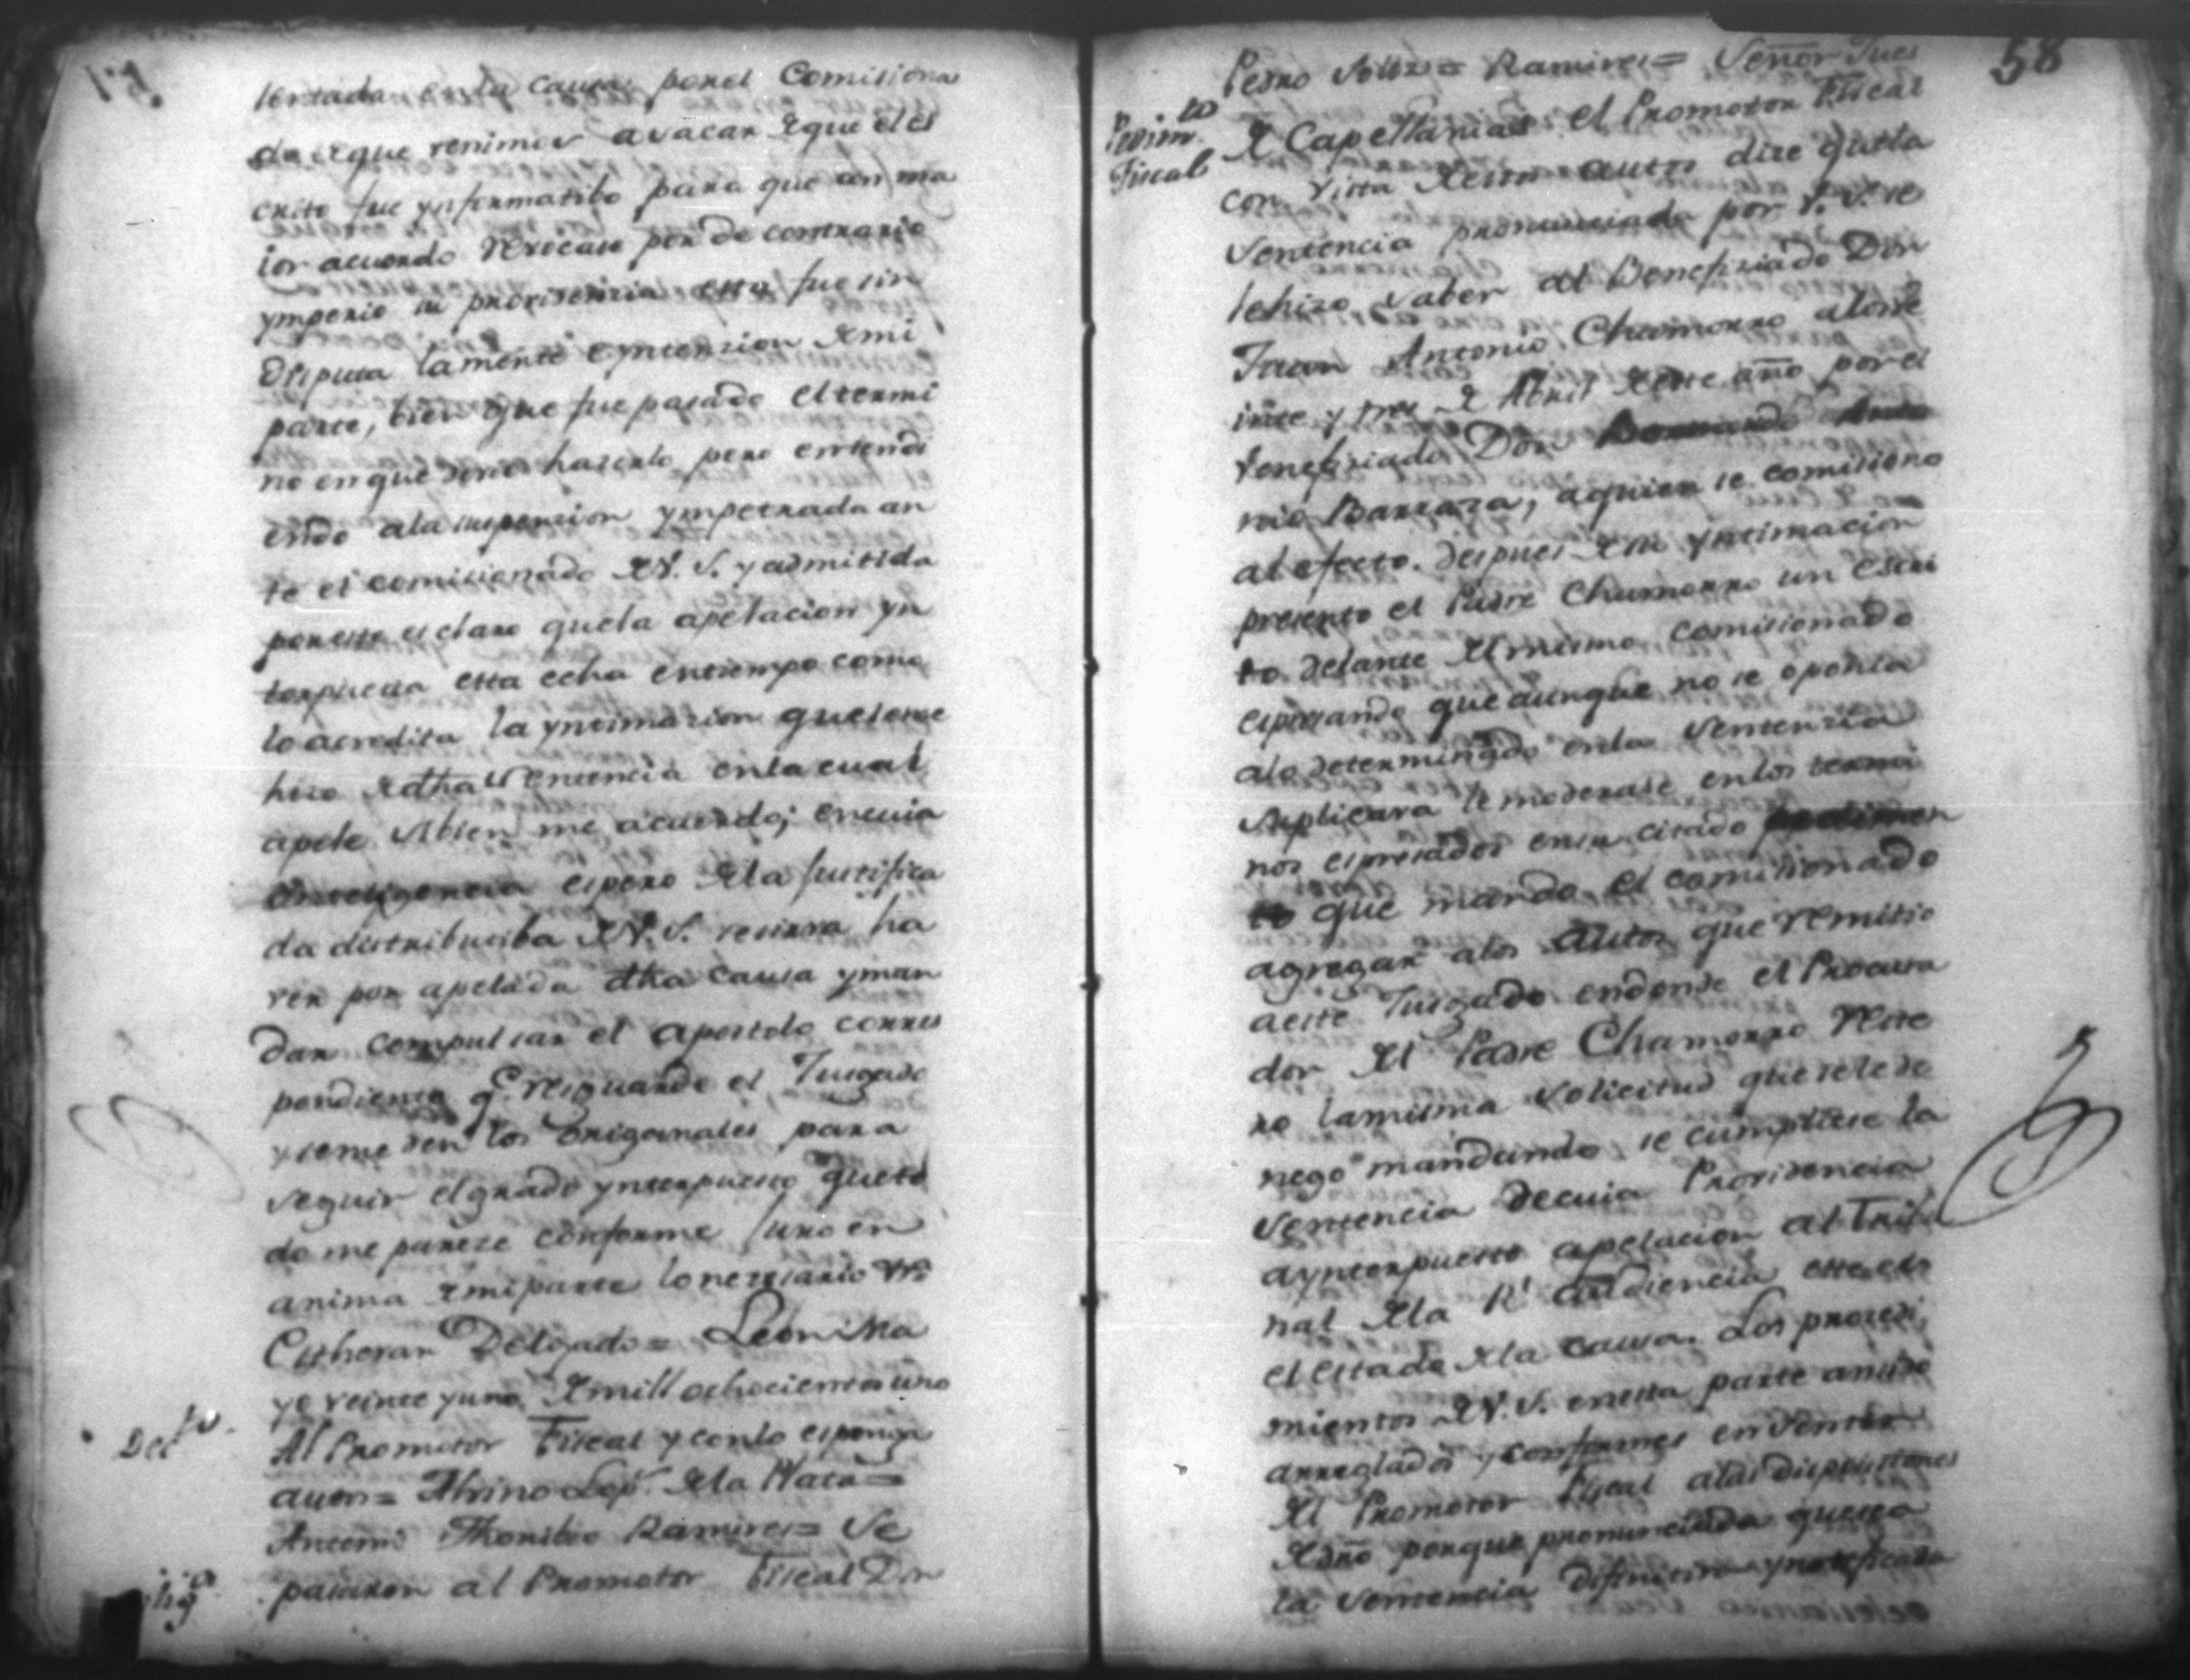 sentada en la causa por el Comisiona
do de que venimos a sacar que el es
crito fue ynformatibo para que con ma
ior acuerdo revocase por de contrario
ymperio su providencia esta fue sin
disputa la mente e yntenzion de mi
parte, bien que fue pasado el termi
no en que devio hazerlo pero entendi
endo a la suspension ympetrada an
te el comisionado de V. S. y admitida
por este es claro que la apelacion yn
terpuesta esta echa en tiempo como
lo acredita la yntimazion que se me
hizo de dha sentencia en la cual
apele si bien me acuerdo; en cuia
ynteligencia espero de la justifica
da distributiba de V. S. se sirva ha
ver por apelada dha causa y man
dar compulsar el apostolo corres
pondiente q.e resguarde el Juzgado
y se me den los originales para
seguir el grado ynterpuesto que to
do me pareze conforme juro en
anima de mi parte lo nezesario &a
Estevan Delgado = Leon i Ma
yo veinte y uno de mill ochocientos uno
Dec.to
Al Promotor Fiscal y con lo esponga
autos = Albino Lop.z de la Plata =
Antemi Thoribio Ramires = Se
pasaron al Promotor Fiscal Don
58
Pedro Solis = Ramires = Señor Jues
Pedim.to
Fiscal
de Capellanias: el Promotor Fiscal
con vista de estos autos dize que la
sentencia pronunciada por V. S. se
le hizo saber al Benefiziado Don
Juan Antonio Chamorro a los ve
inte y tres de Abril de este año por el
Benefiziado Don
nio Barraza, a quien se comisiono
al efecto. despues de su yntimacion
presento el Padre Chamorro un escri
to delante del mismo comisionado
espresando que aunque no se oponia
a lo determinado en la sentenzia
suplicava se moderase en los termi
nos espresados en su citado pedimen
to que mando el comisionado
agregar a los autos que remitio
a este Juzgado en donde el Procura
dor del Padre Chamorro reite
ro la misma solicitud que se le de
nego mandando se cumpliese la
sentencia de cuia Providencia
a ynterpuesto apelacion al Tribu
nal de la R.l audiencia este es
el estado de la causa. Los prozedi
mientos de V. S. en esta parte an sido
arreglados y conformes en sentir
del Promotor Fiscal a las dispusiciones
de dro porque pronunciada que sea
la sentencia difinitiva y notificada